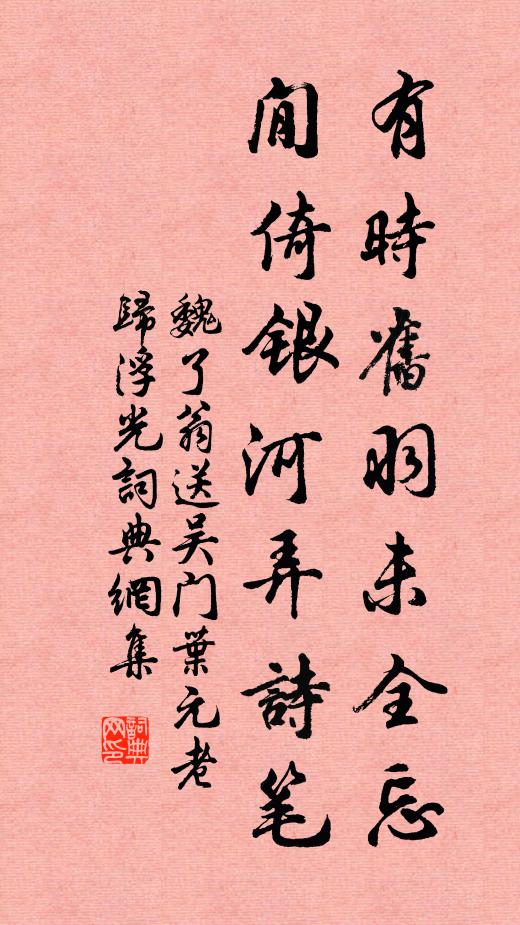 有時舊羽未全忘
閒倚銀河弄詩笔
魏了翁送吴门葉元老
歸浮光詞典網集
詞典
网印